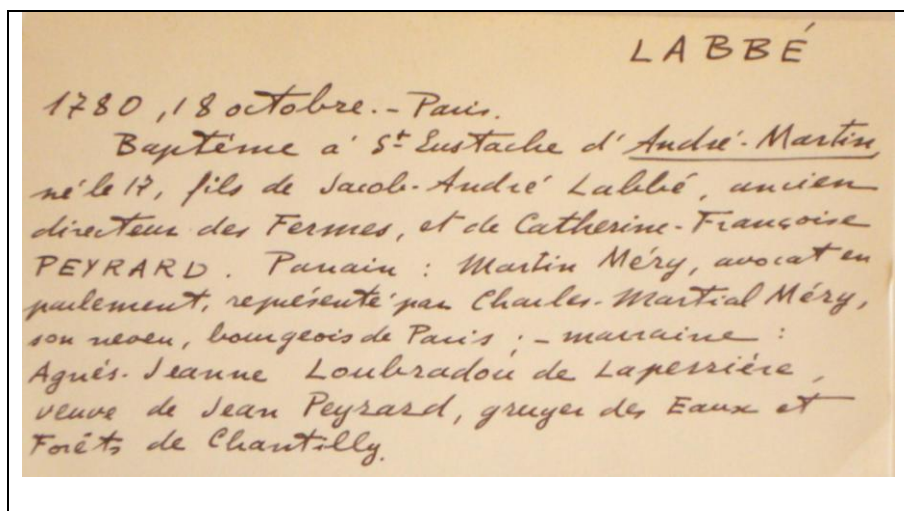 LABBÉ
1780, 18 octobre. - Paris.
Baptême à St Eustache d'André-Martin,
né le 17, fils de Jacob-André Labbé, ancien
directeur des Fermes, et de Catherine-Françoise
PEYRARD. Parrain : Martin Méry, avocat en
parlement, représenté par Charles-Martial Méry,
son neveu, bourgeois de Paris ; - marraine :
Agnés-Jeanne Loubradou de Laperrière,
veuve de Jean Peyrard, gruyer des Eaux et
Forêts de Chantilly.